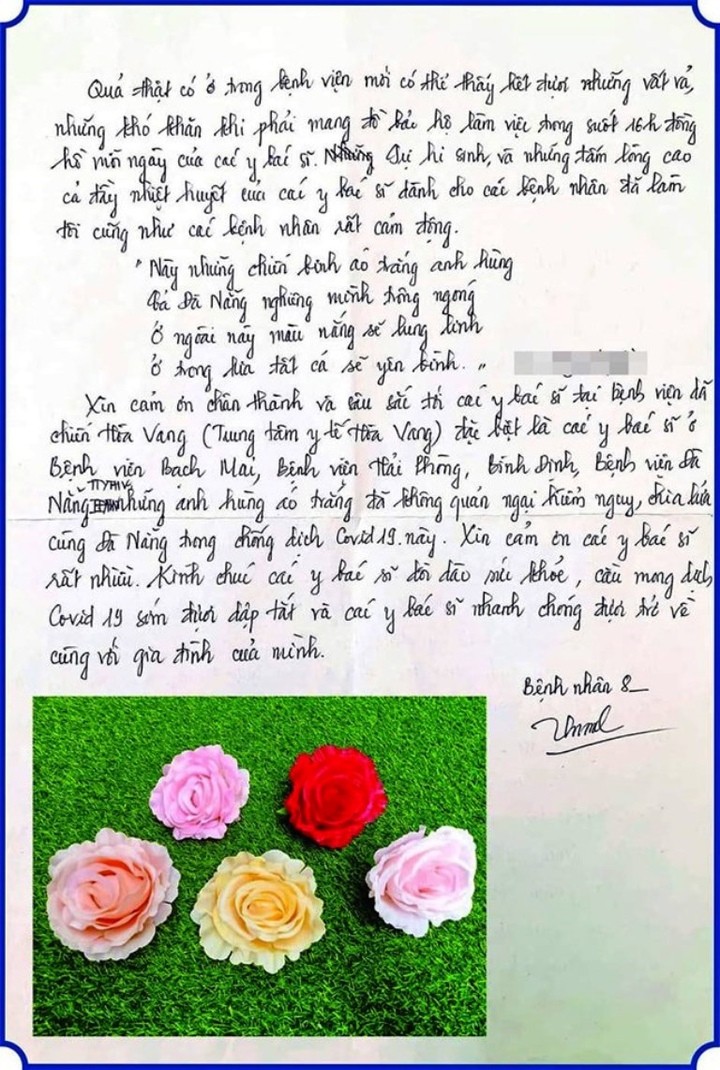 Quả thật có ở trong bệnh viện mới có thể thấy hết được những vất vả,
những khó khăn khi phải mang đồ bảo hộ làm việc trong suốt 16h đồng
hồ mỗi ngày của các y bác sĩ. Những sự hi sinh, và những tấm lòng cao
cả đầy nhiệt huyết của các y bác sĩ dành cho các bệnh nhân đã làm
tôi cũng như các bệnh nhân rất cảm động.
" Này những chiến binh áo trắng anh hùng
Cả Đà Nẵng nghiêng mình trông ngóng
Ở ngoài này màu nắng sẽ lung linh
Ở trong kia tất cả sẽ yên bình. "
Xin cảm ơn chân thành và sâu sắc tới các y bác sĩ tại bệnh viện dã
chiến Hòa Vang (Trung tâm y tế Hòa Vang) đặc biệt là các y bác sĩ ở
Bệnh viện Bạch Mai, Bệnh viện Hải Phòng, Bình Định, Bệnh viện Đà
Nẵng TTYTHV những anh hùng áo trắng đã không quản ngại hiểm nguy, chia lửa
cùng Đà Nẵng trong chống dịch Covid 19 này. Xin cảm ơn các y bác sĩ
rất nhiều. Kính chúc các y bác sĩ dồi dào sức khỏe, cầu mong dịch
Covid 19 sớm được dập tắt và các y bác sĩ nhanh chóng được trở về
cùng với gia đình của mình.
Bệnh nhân